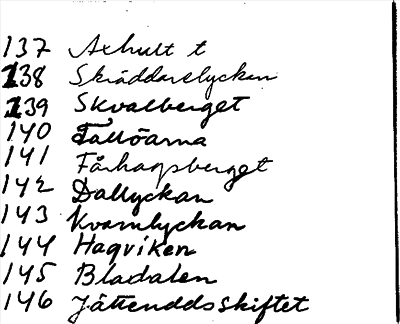 137 Axhult t
138 Skräddarelyckan
139 Skvalberget
140 Tallöarna
141 Fårhagsberget
142 Dallyckan
143 Kvarnlyckan
144 Hagviken
145 Bladalen
146 Jättenddsskiftet